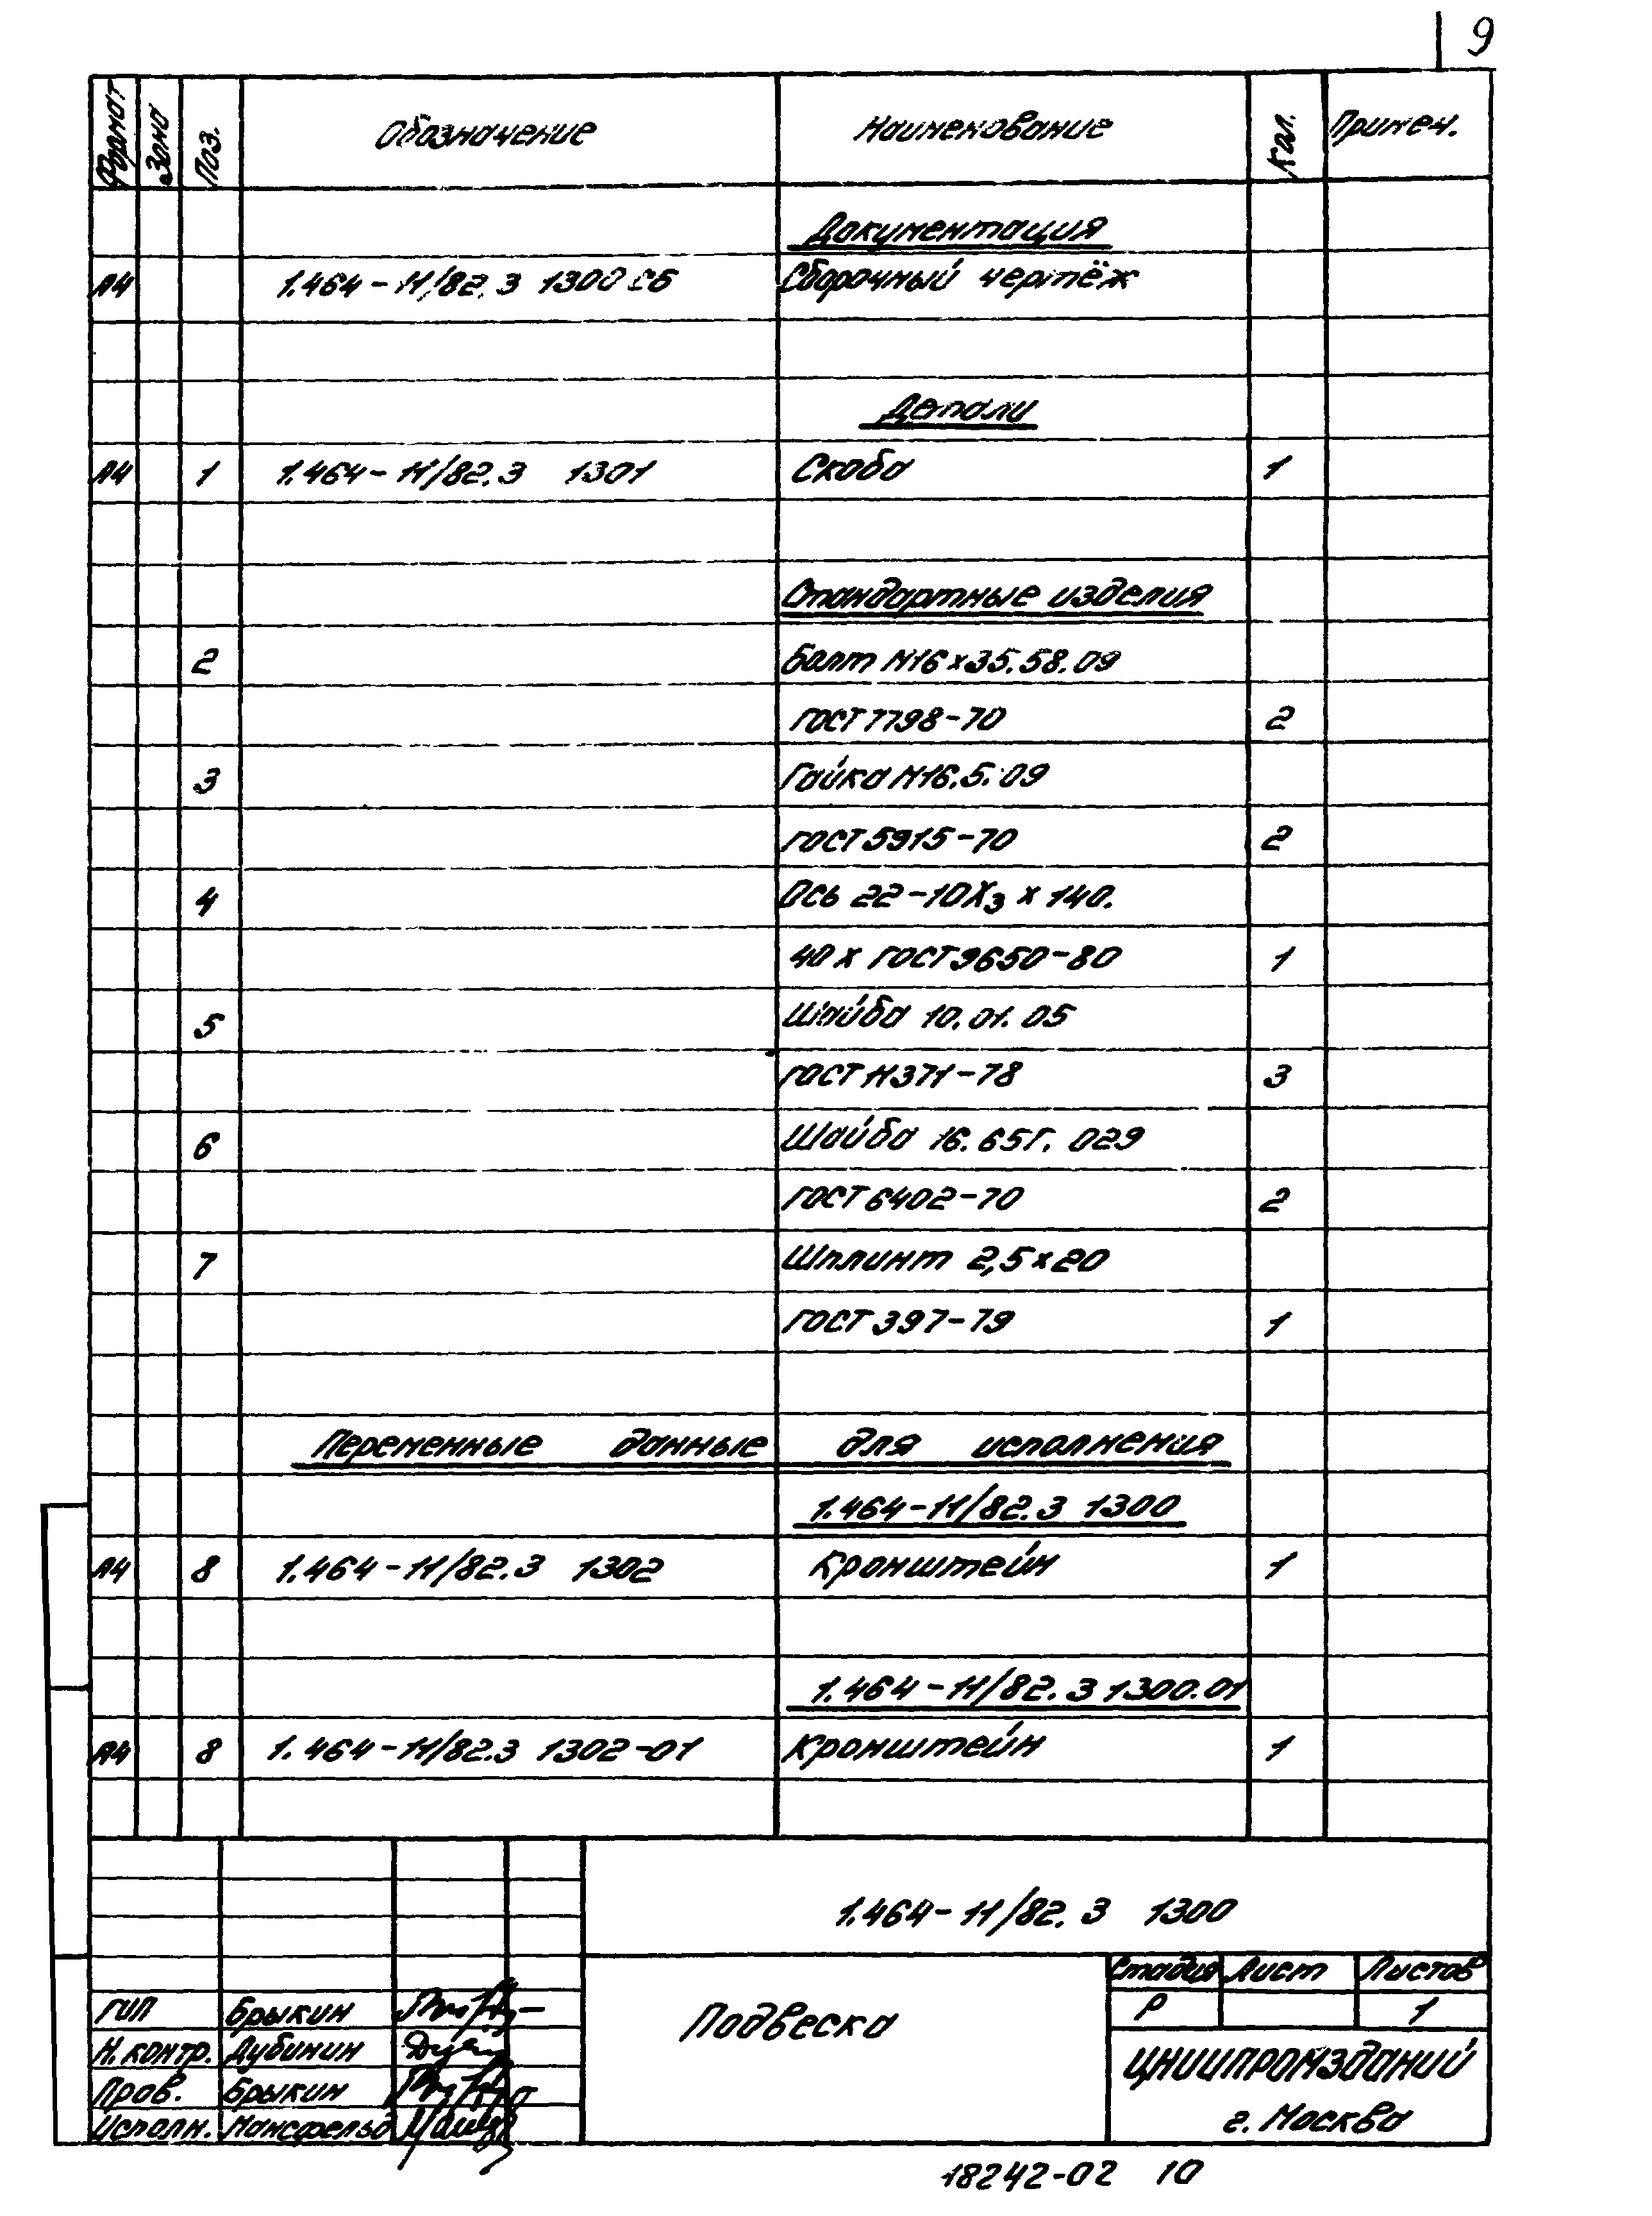 9
Формат Зона Поз. Обозначение Наименование Кол. Примеч.
Документация
А4 1.464-11/82.3 1300 СБ Сборочный чертёж
Детали
А4 1 1.464-11/82.3 1301 Скоба 1
Стандартные изделия
2 Болт М16х35.58.09
ГОСТ 7798-70 2
3 Гайка М16.5.09
ГОСТ 5915-70 2
4 Ось 22-10Х3 х 140.
40х ГОСТ 9650-80 1
5 Шайба 10.01.05
ГОСТ 11371-78 3
6 Шайба 16.65Г.029
ГОСТ 6402-70 2
7 Шплинт 2,5х20
ГОСТ 397-79 1
Переменные данные для исполнения
1.464-11/82.3 1300
А4 8 1.464-11/82.3 1302 Кронштейн 1
1.464-11/82.3 1300.01
А4 8 1.464-11/82.3 1302-01 Кронштейн 1
1.464-11/82.3 1300
Стадия Лист Листов
Р 1
ГИП Брыкин
Н. контр. Дубинин
Пров. Брыкин
Исполн. Мансфельд
Подвеска
ЦНИИПРОМЗДАНИЙ
г. Москва
18242-02 10